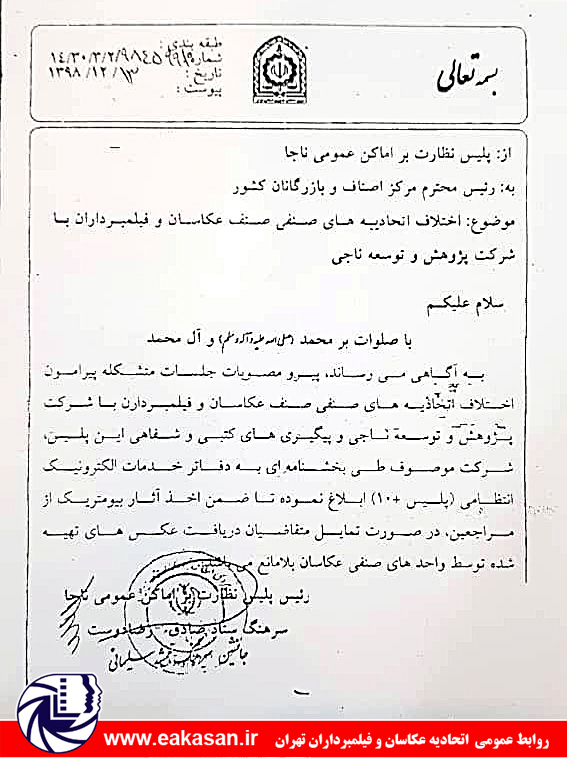 بسمه تعالی
طبقه بندی :
شماره : ۱۴/۳۰/۳/۲/۹۸۴۵
تاریخ : ۱۳۹۸/۱۲/۱۳
پیوست :
از: پلیس نظارت بر اماکن عمومی ناجا
به: رئیس محترم مرکز اصناف و بازرگانان کشور
موضوع: اختلاف اتحادیه های صنفی صنف عکاسان و فیلمبرداران با
شرکت پژوهش و توسعه ناجی
سلام علیکم
با صلوات بر محمد (صلی الله علیه و آله و سلم) و آل محمد
به آگاهی می رساند، پیرو مصوبات جلسات متشکله پیرامون
اختلاف اتحادیه های صنفی صنف عکاسان و فیلمبردارن با شرکت
پژوهش و توسعه ناجی و پیگیری های کتبی و شفاهی این پلیس،
شرکت موصوف طی بخشنامه ای به دفاتر خدمات الکترونیک
انتظامی (پلیس +۱۰) ابلاغ نموده تا ضمن اخذ آثار بیومتریک از
مراجعین، در صورت تمایل متقاضیان دریافت عکس های تهیه
شده توسط واحد های صنفی عکاسان بلامانع می باشد.
رئیس پلیس نظارت بر اماکن عمومی ناجا
سرهنگ ستاد صادق رضادوست
جانشین سرهنگ جمشید سلیمانی
روابط عمومی اتحادیه عکاسان و فیلمبرداران تهران www.eakasan.ir